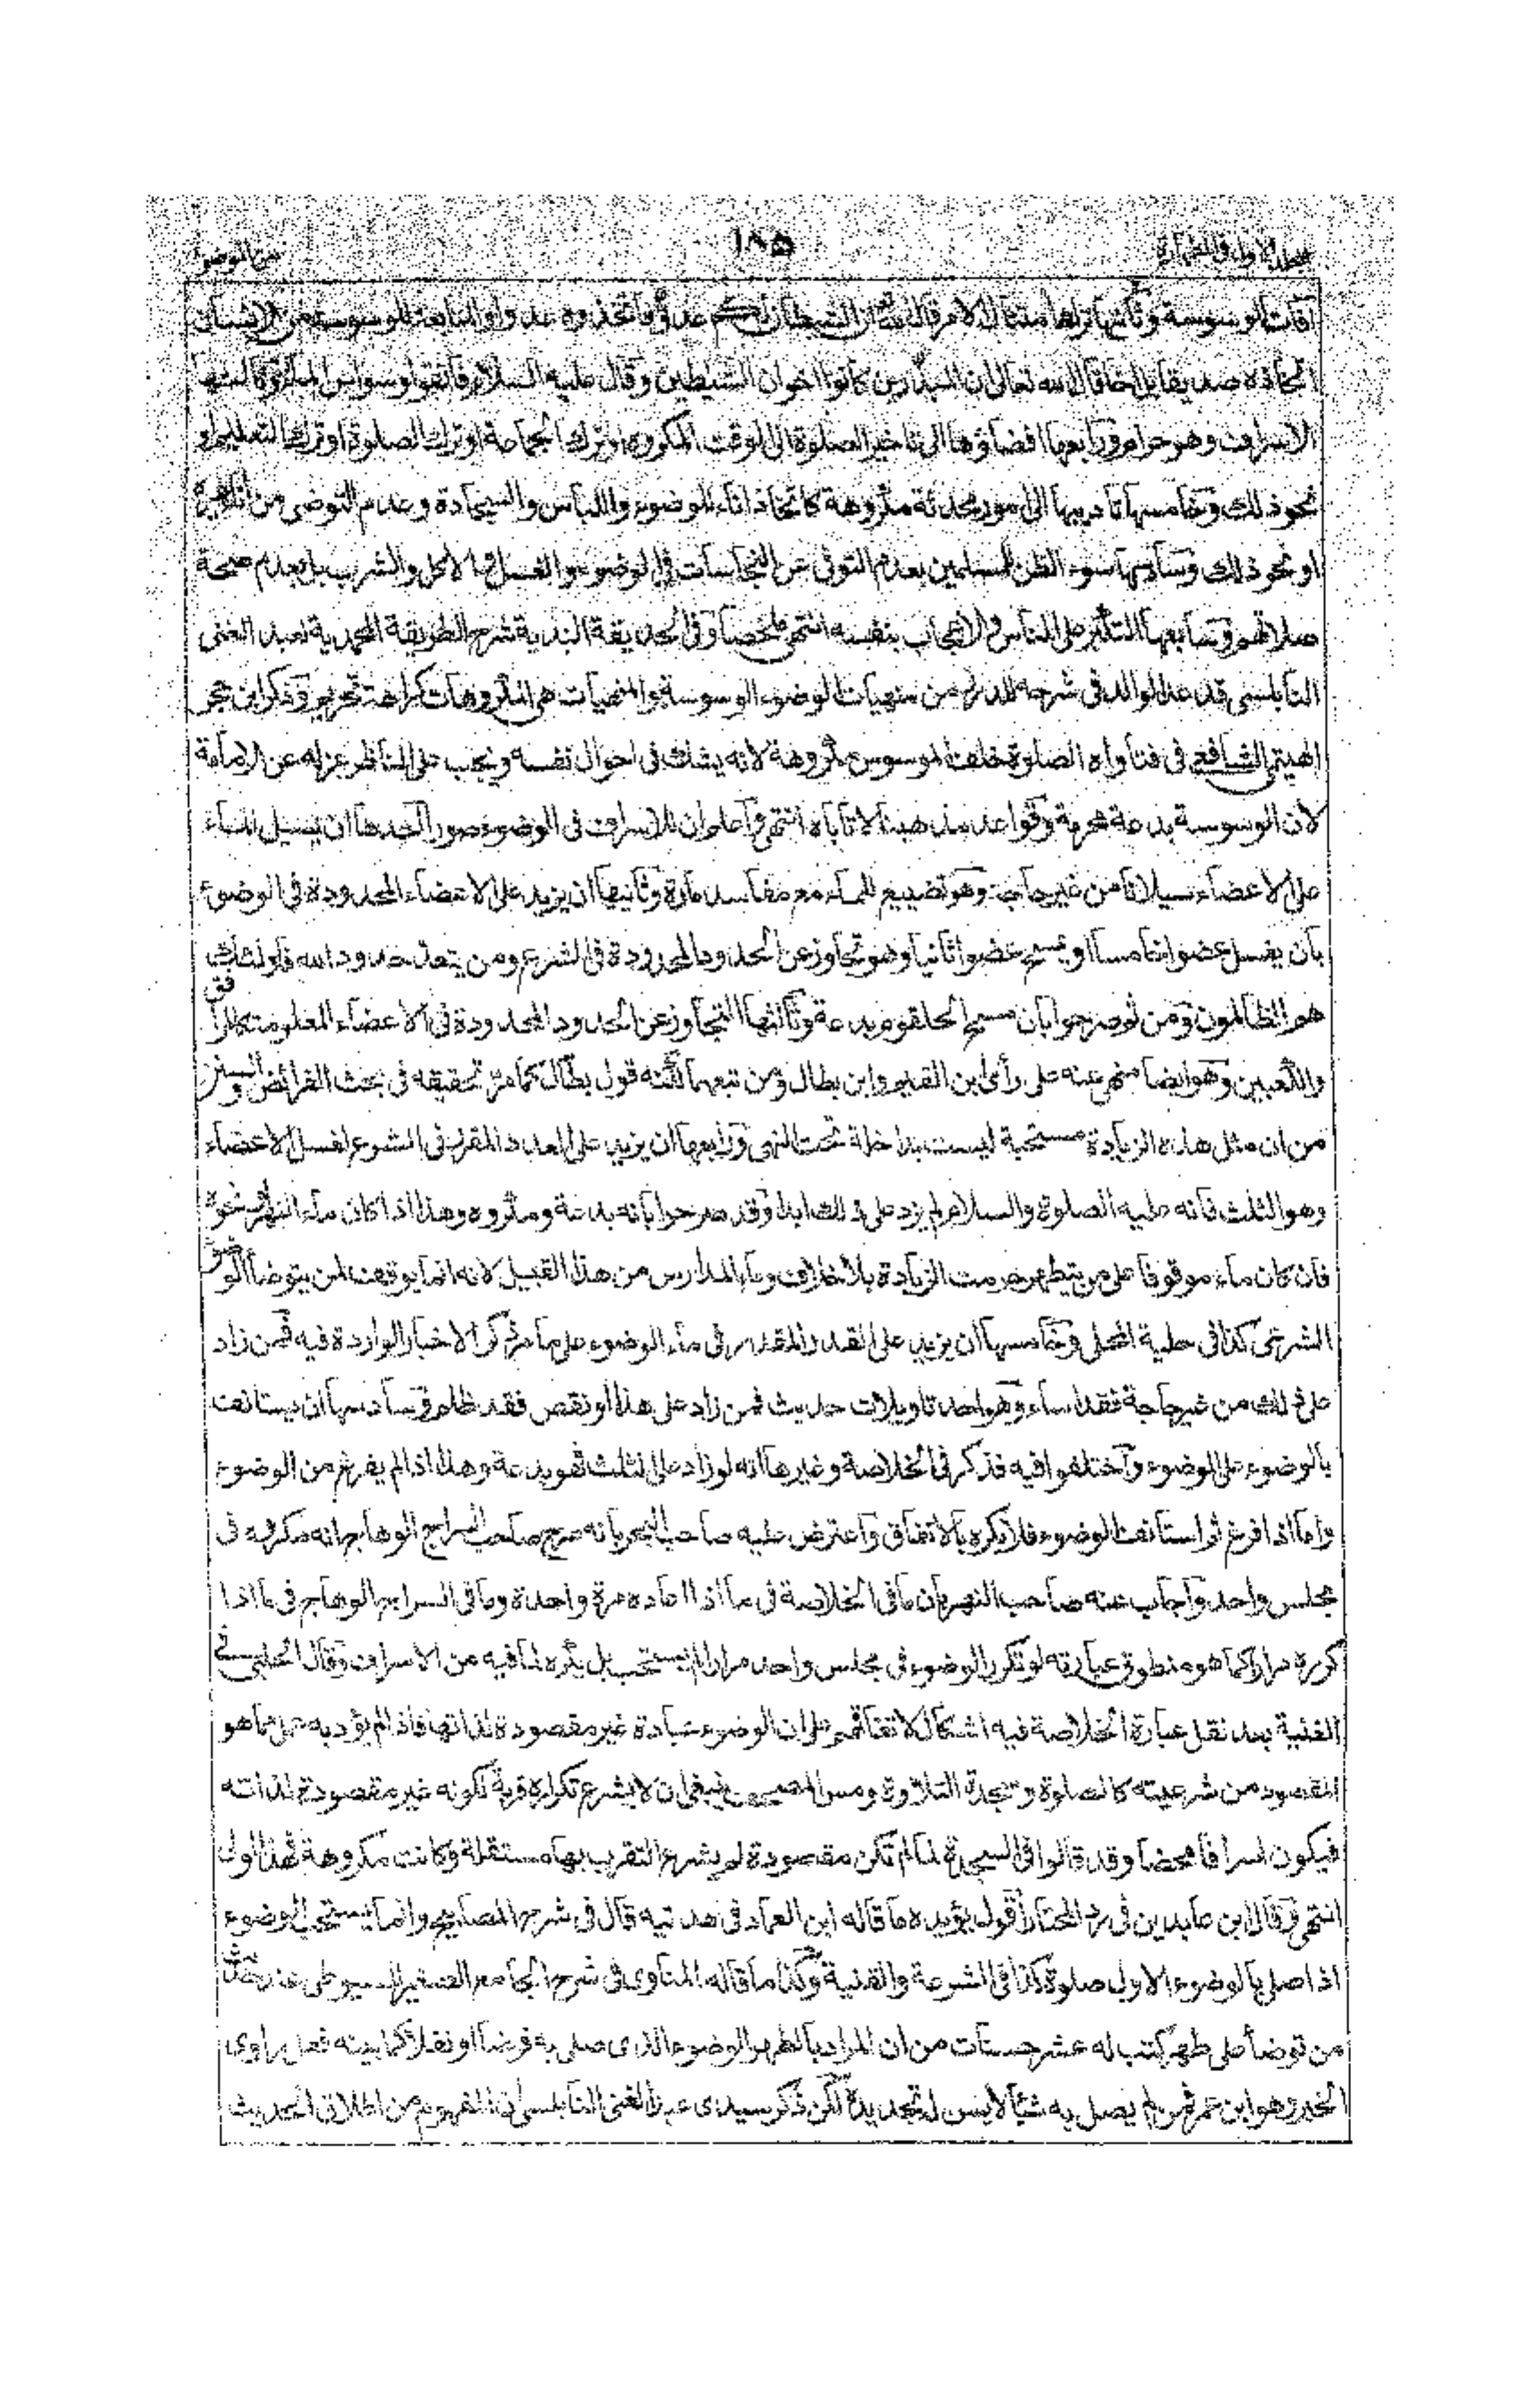 ١٨٥
آفات الوسوسة وثانيها ترك امتثال الامر قال الله ان الشيطان لكم عدو فاتخذوه عدوا والمتابعة للوسوسة من الشيطان
اتخاذه صديقا قال الله تعالى ان المبذرين كانوا اخوان الشيطين وقال عليه السلام فاتقوا وسواس الماء وثالثها
الاسراف وهو حرام ورابعها افضاؤها الى تاخير الصلوة الى الوقت المكروه او ترك الجماعة او ترك الصلوة او ترك التعليم او
نحو ذلك وخامسها تاديبها الى امور محدثة مكروهة كاتخاذ اناء للوضوء واللباس والسجادة وعدم التوضى من اناء غيره
او نحو ذلك وسادسها سوء الظن للمسلمين بعدم التوقى عن النجاسات فى الوضوء والغسل والاكل والشرب بل بعدم صحة
صلاتهم وسابعها التكبر على الناس والاعجاب بنفسه انتهى ملخصا وفى الحديقة الندية شرح الطريقة المحمدية لعبد الغنى
النابلسى قد عد الوالد فى شرحه للدرر من منهيات الوضوء الوسوسة والمنهيات هى المكروهات كراهة تحريم وذكر ابن حجر
الهيتمى الشافعى فى فتاواه الصلوة خلف الموسوس مكروهة لانه يشك فى احوال نفسه ويجب على الناظر عزله عن الامامة
لان الوسوسة بدعة محرمة وقواعد مذهبنا لا تاباه انتهى واعلم ان للاسراف فى الوضوء صورا احدها ان يسيل الماء
على الاعضاء سيلانا من غير حاجة وهو تضييع للماء مع مفاسد مارة وثانيها ان يزيد على الاعضاء المحدودة فى الوضوء
بان يغسل عضوا خامسا او يمسح عضوا ثانيا وهو تجاوز عن الحدود المحدودة فى الشرع ومن يتعد حدود الله فاولئك
هم الظالمون ومن ثم صرحوا بان مسح الحلقوم بدعة وثالثها التجاوز عن الحدود المحدودة فى الاعضاء المعلومة كالمرافق
والكعبين وهو ايضا منهى عنه على رأى ابن القيم وابن بطال ومن تبعهما لكنه قول بطال كما مر تحقيقه فى بحث الفرائض والسنن
من ان مثل هذه الزيادة مستحبة ليست بداخلة تحت النهى ورابعها ان يزيد على العدد المقرر فى الشرع لغسل الاعضاء
وهو الثلث فانه عليه الصلوة والسلام لم يزد على ذلك ابدا وقد صرحوا بانه بدعة ومكروه وهذا اذا كان ماء النهر ونحوه
فان كان ماء موقوفا على من يتطهر حرمت الزيادة بلا خلاف وماء المدارس من هذا القبيل لانه انما يوقف لمن يتوضأ الوضوء
الشرعى كذا فى حلية المحلى وخامسها ان يزيد على القدر المقدر فى ماء الوضوء على ما مر ذكر الاخبار الواردة فيه فمن زاد
على ذلك من غير حاجة فقد اساء وهو احد تاويلات حديث فمن زاد على هذا او نقص فقد ظلم وسادسها ان يستانف
بالوضوء على الوضوء واختلفوا فيه فذكر فى الخلاصة وغيرها انه لو زاد على الثلث فهو بدعة وهذا اذا لم يفرغ من الوضوء
واما اذا فرغ ثم استانف الوضوء فلا يكره بالاتفاق واعترض عليه صاحب البحر بانه صرح صاحب السراج الوهاج بانه مكروه فى
مجلس واحد واجاب عنه صاحب النهر بان ما فى الخلاصة فى ما اذا اعاده مرة واحدة وما فى السراج الوهاج فى ما اذا
كرره مرارا كما هو منطوق عبارته لو تكرر الوضوء فى مجلس واحد مرارا لم يستحب بل يكره لما فيه من الاسراف وقال الحلبى فى
الغنية بعد نقل عبارة الخلاصة فيه اشكال لاتفاقهم على ان الوضوء عبادة غير مقصودة لذاتها فاذا لم يؤد به عمل مما هو
المقصود من شرعيته كالصلوة وسجدة التلاوة ومس المصحف ينبغى ان لا يشرع تكراره قربة لكونه غير مقصودة لذاته
فيكون اسرافا محضا وقد قالوا فى السجدة لما لم تكن مقصودة لم يشرع التقرب بها مستقلة وكانت مكروهة فهذا اولى
انتهى وقال ابن عابدين فى رد المحتار اقول يؤيده ما قاله ابن العماد فى هديته قال فى شرح المصابيح وانما يستحب الوضوء
اذا صلى بالوضوء الاول صلوة كذا فى الشرعة والقنية وكذا ما قاله المناوى فى شرح الجامع الصغير للسيوطى عند حديث
من توضأ على طهر كتب له عشر حسنات من ان المراد بالطهر الوضوء الذى صلى به فرضا او نفلا كما بينه فعل راوى
الخبر وهو ابن عمر فمن لم يصل به شيأ لا يسن له تجديده لكن ذكر سيدى عبد الغنى النابلسى ان المفهوم من اطلاق الحديث